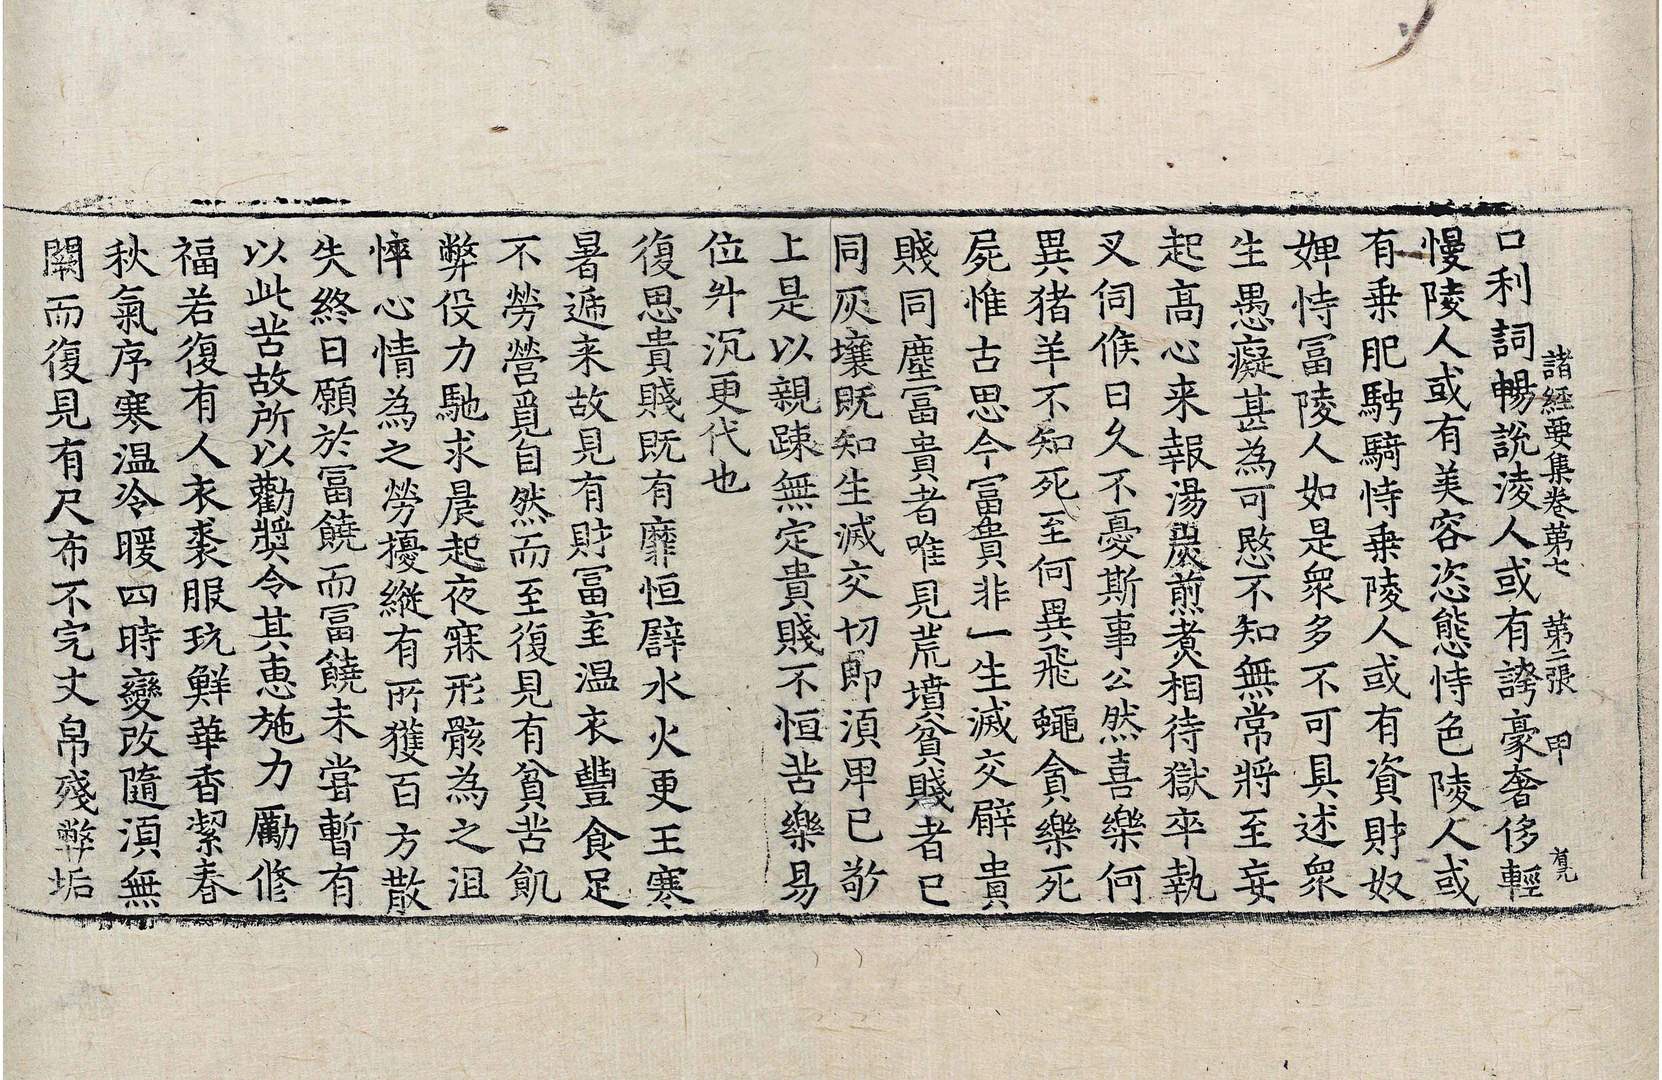 諸經要集卷第七 第二張 甲
口利詞暢說淩人或有誇豪奢侈輕
慢陵人或有美容恣態恃色陵人或
有乗肥騁騎恃乗陵人或有資財奴
婢恃冨陵人如是衆多不可具述衆
生愚癡甚為可愍不知無常將至妄
起髙心来報湯炭煎煑相待獄卒執
叉伺候日久不憂斯事公然喜樂何
異猪羊不知死至何異飛蠅貪樂死
屍惟古思今冨貴非一生滅交臂貴
賤同塵富貴者唯見荒墳貧賤者已
同灰壤既知生滅交切即湏卑已敬
上是以親踈無定貴賤不恒苦樂易
位升沉更代也
復思貴賤既有靡恒譬水火更王寒
暑遞来故見有財冨室温衣豐食足
不勞營覓自然而至復見有貧苦飢
弊役力馳求晨起夜寐形骸為之沮
悴心情為之勞擾縱有所獲百方散
失終日願於冨饒而冨饒未嘗暫有
以此苦故所以勸奬令其惠施力勵修
福若復有人衣裘服玩鮮華香潔春
秋氣序寒温冷暖四時變改隨湏無
闕而復見有尺布不完丈帛殘弊垢